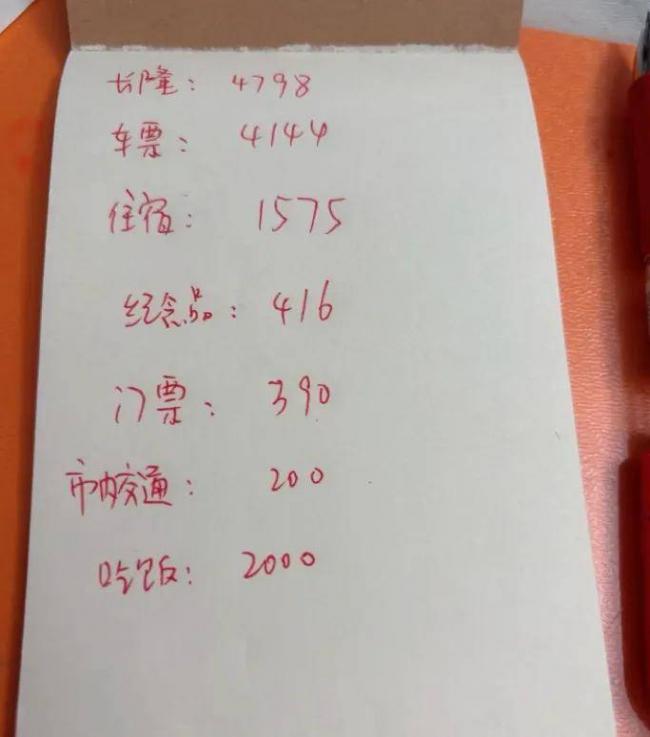 长隆: 4798
车票: 4144
住宿: 1575
纪念品: 416
门票: 390
市内交通: 200
吃饭: 2000